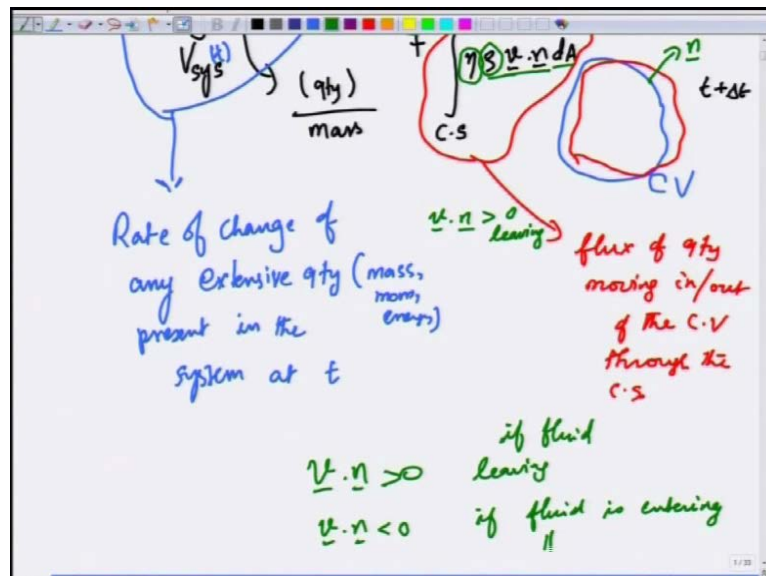 Vsys(t)
(qty)
mass
+
∫ η ρ v . n dA
C.S
n
t+Δt
CV
Rate of change of
any extensive qty (mass,
mom,
energy)
present in the
system at t
v . n > 0
leaving
flux of qty
moving in/out
of the C.V
through the
C.S
v . n > 0 if fluid
leaving
v . n < 0 if fluid is entering
1/33